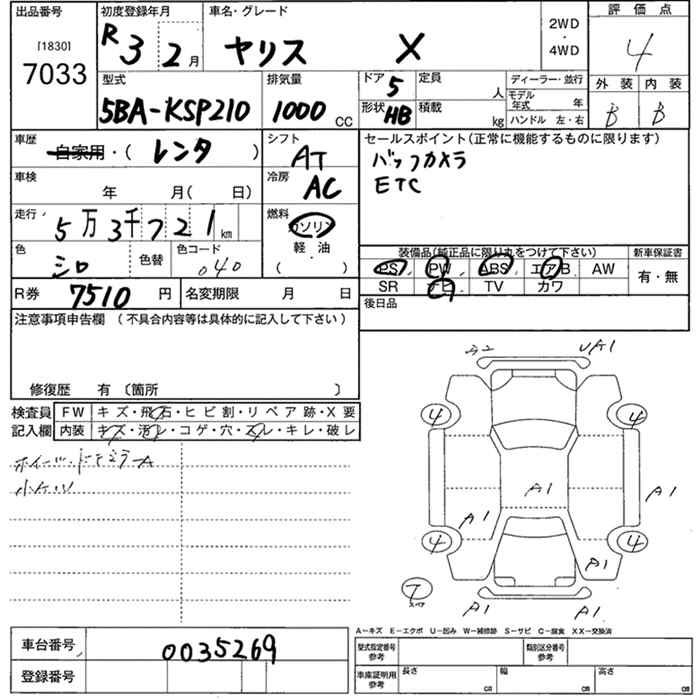 出品番号 初度登録年月 車名・グレード 評価点
[1830]
7033
R 3 2月 ヤリス X 2WD・4WD 4
型式 排気量 ドア 5 定員 人 ディーラー・並行 外装 内装
5BA-KSP210 1000 CC 形状 HB 積載 kg モデル年式 年 ハンドル 左・右 B B
車歴 自家用・( レンタ ) シフト AT セールスポイント(正常に機能するものに限ります)
車検 年 月( 日) 冷房 AC バックカメラ
ETC
走行 5万3千721km 燃料 ガソリン
軽油
( )
色 シロ 色替 色コード 040
装備品(純正品に限り丸をつけて下さい) 新車保証書
PS PW ABS エアB AW 有・無
SR ナビ TV カワ
R券 7510円 名変期限 月 日 後日品
注意事項申告欄(不具合内容等は具体的に記入して下さい)
修復歴 有〔箇所 〕
検査員記入欄 FW キズ・飛石・ヒビ割・リペア跡・X要
内装 キズ・汚レ・コゲ・穴・スレ・キレ・破レ
ホイール・ドアミラーA
UA1
4 4
A1
A1 A1
4 4
A1
7
スペア
A1 A1
A-キズ E-エクボ U-凹み W-補修跡 S-サビ C-腐食 XX-交換済
車台番号 0035269
登録番号
型式指定番号 参考 類別区分番号 参考
車庫証明用 参考 長さ cm 幅 cm 高さ cm